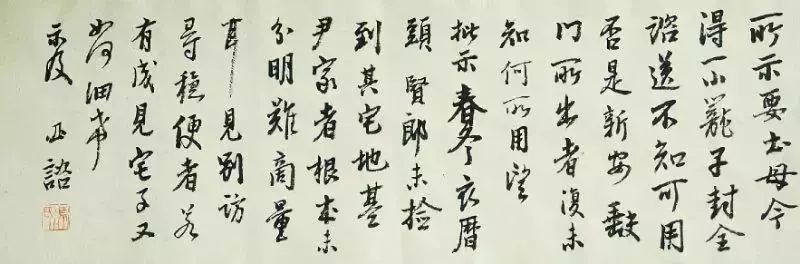 所示要土母今
得一小籠子封全
諮送不知可用
否是新安缺
門所出者復未
知何所用望
批示春冬衣曆
頭賢郎未撿
到其宅地基
尹家者根本未
分明難商量
耳見別訪
尋穩便者若
有成見宅子又
如何細希
示及